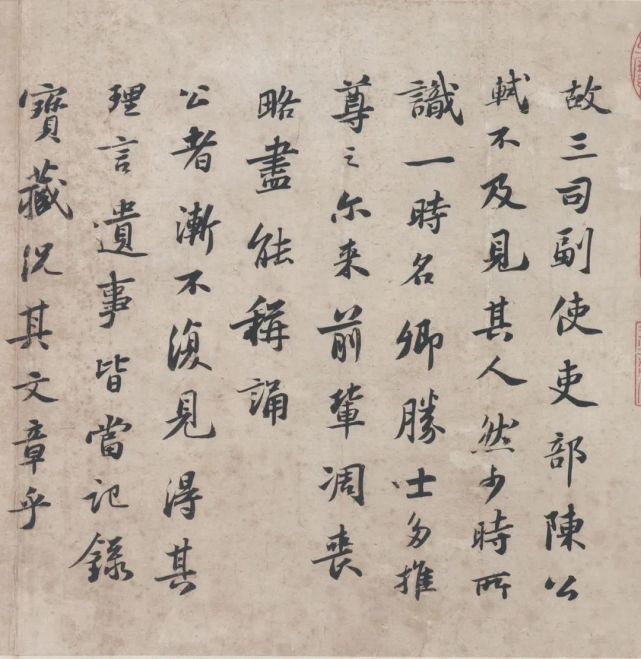 故三司副使吏部陳公
軾不及見其人然少時所
識一時名卿勝士多推
尊之尔来前輩凋喪
略盡能稱誦
公者漸不復見得其
理言遺事皆當記錄
寳藏況其文章乎